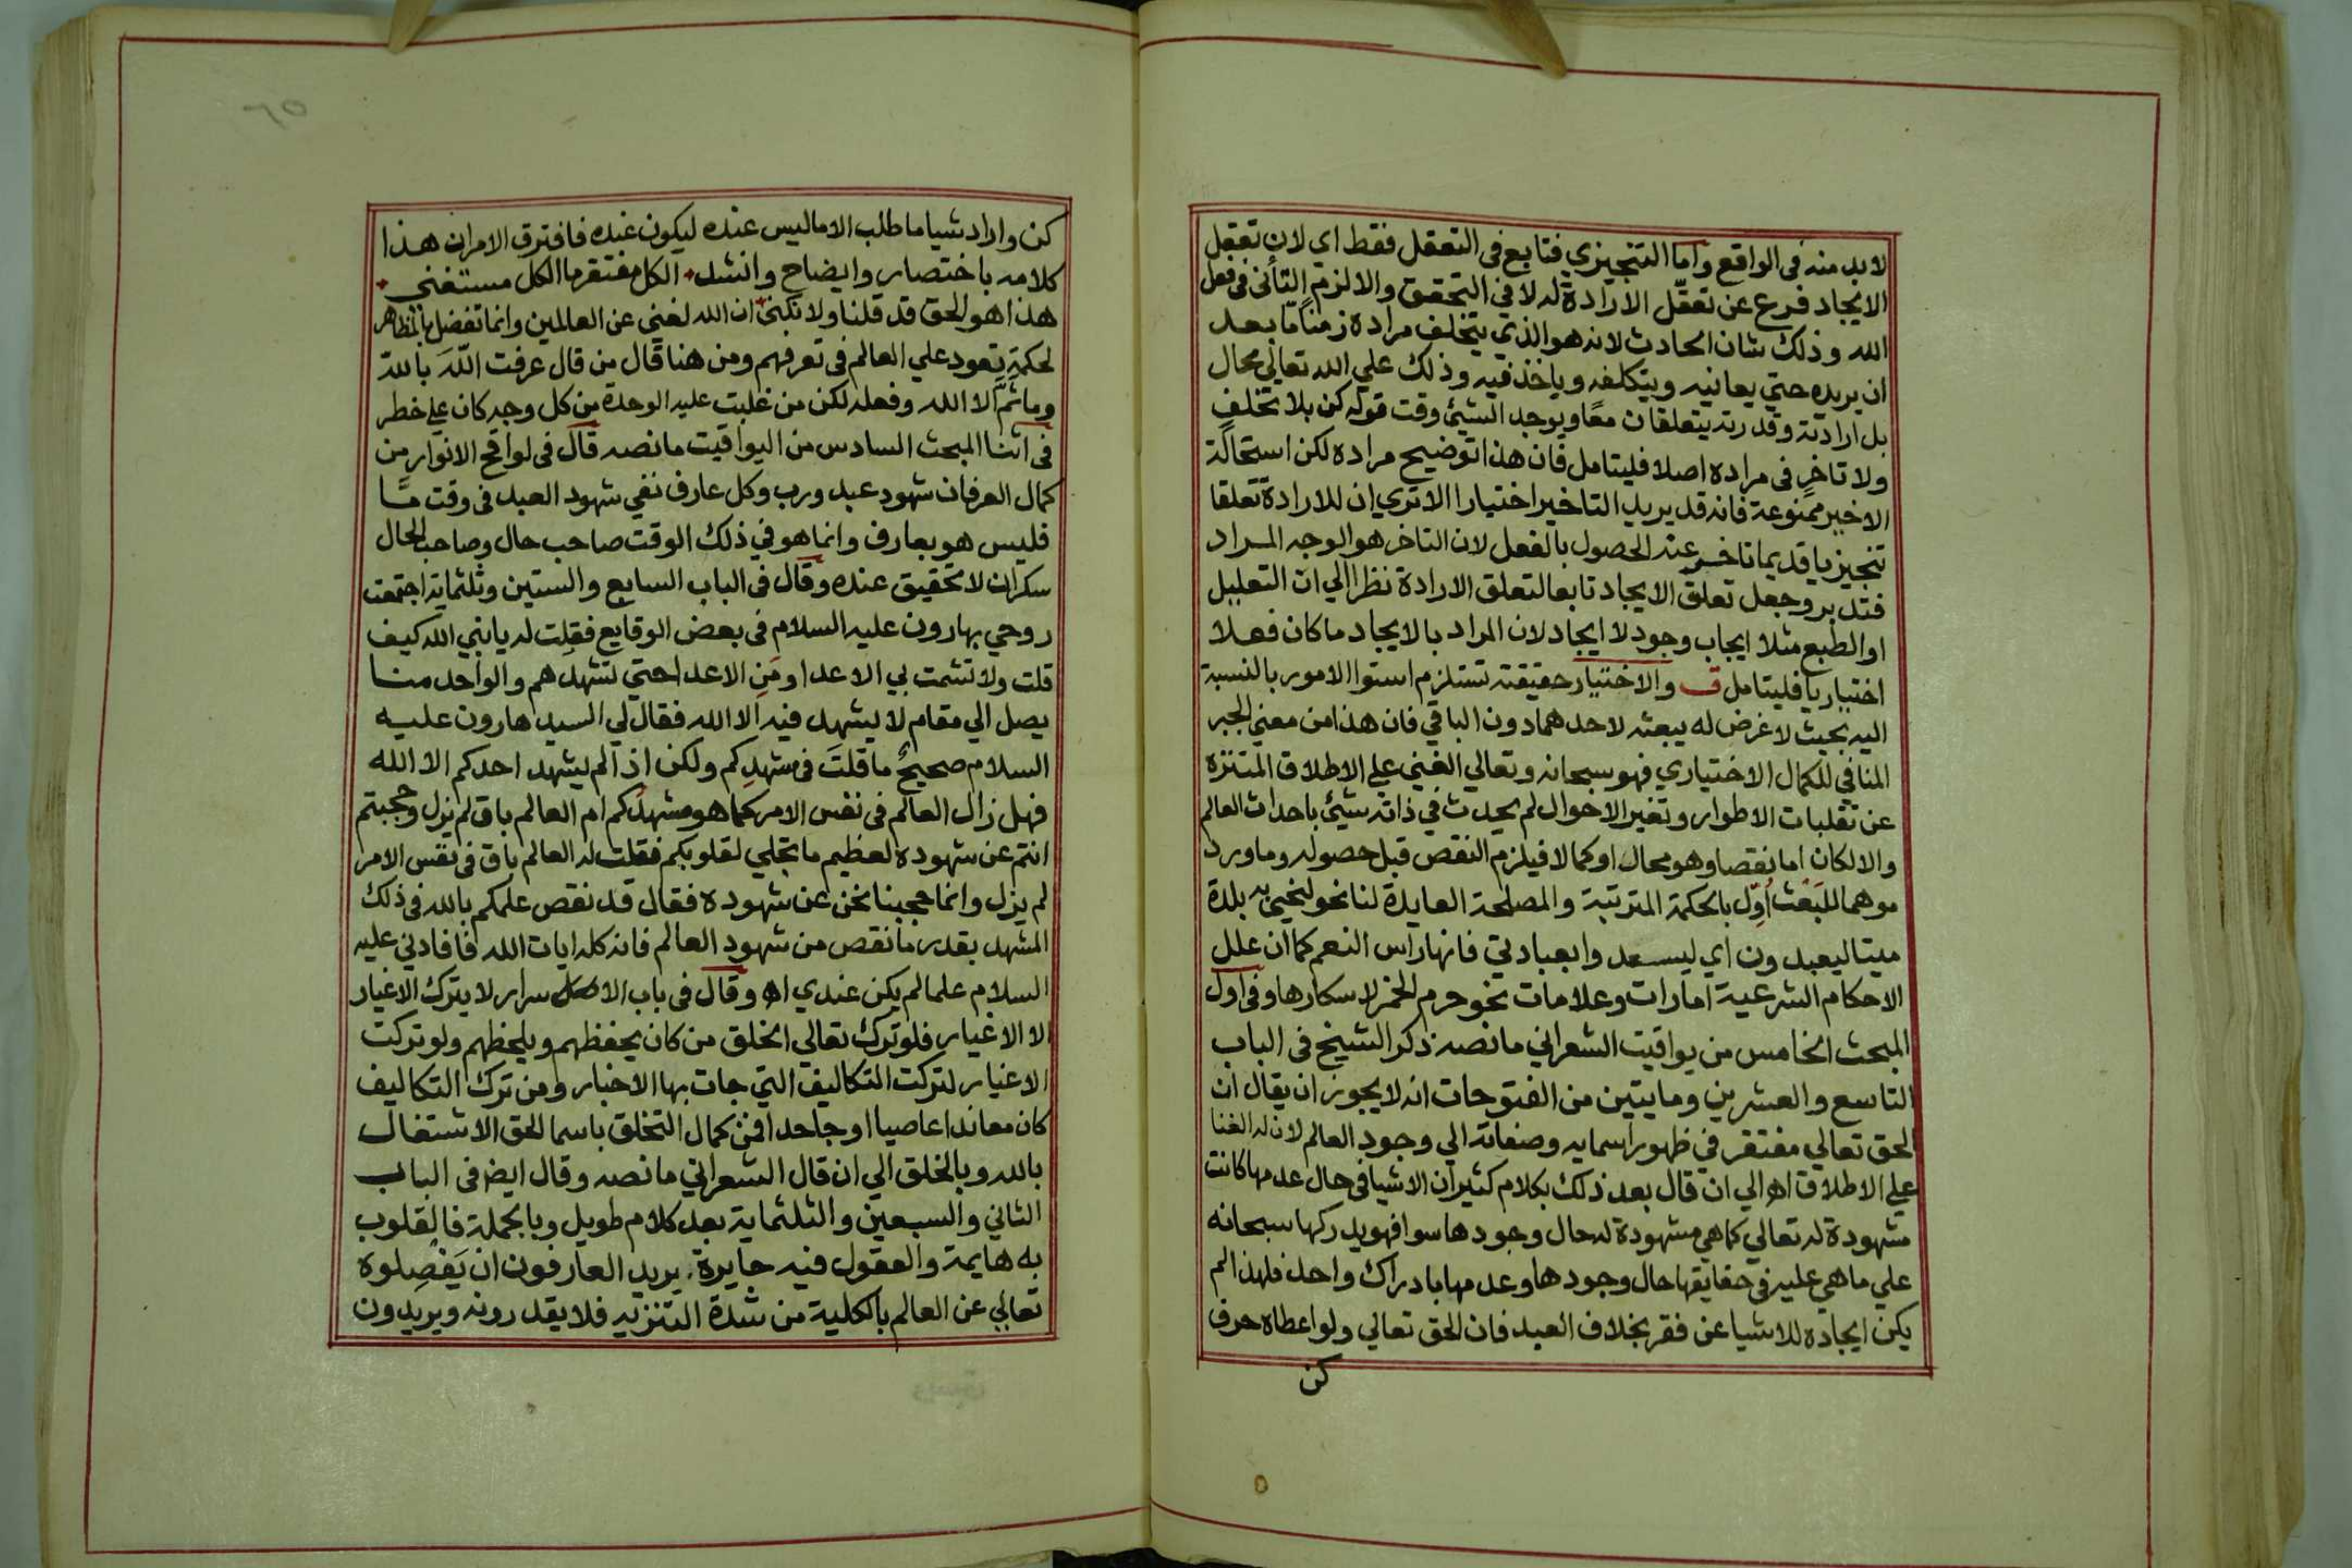 لا بد منه فى الواقع واما التنجيزي فتابع فى التعقل فقط اي لان تعقل
الايجاد فرع عن تعقّل الارادة له لا في التحقق والا لزم التأنى فى فعل
الله وذلك شان الحادث لانه هو الذي يتخلف مراده زمنًا مّا بعد
ان يريده حتي يعانيه ويتكلفه وياخذ فيه وذلك علي الله تعالي محال
بل ارادته وقدرته يتعلقان معًا ويوجد الشيئ وقت قوله كن بلا تخلف
ولا تاخر فى مراده اصلا فليتامل فان هذا توضيح مراده لكن استحالة
الاخير ممنوعة فانه قد يريد التاخير اختيارا الا تري ان للارادة تعلقا
تنجيزيا قديما تاخر عنه الحصول بالفعل لان التاخر هو الوجه المراد
فتدبر وجعل تعلق الايجاد تابعا لتعلق الارادة نظرا الي ان التعليل
او الطبع مثلا ايجاب وجود لا ايجاد لان المراد بالايجاد ما كان فعلا
اختياريا فليتامل ف والاختيار حقيقته تستلزم استوا الامور بالنسبة
اليه بحيث لا غرض له يبعثه لاحدهما دون الباقي فان هذا من معني الجبر
المنافي للكمال الاختياري فهو سبحانه وتعالي الغني علي الاطلاق المتنزه
عن تقلبات الاطوار وتغير الاحوال لم يحدث في ذاته شيئ باحداث العالم
والا لكان اما نقصا وهو محال او كمالا فيلزم النقص قبل حصوله وما ورد
موهما للبَعْث أوّل بالحكمة المترتبة والمصلحة العايدة لنا نحو لنحيي به بلدة
ميتا ليعبدون اي ليسعدوا بعبادتي فانها راس النعم كما ان علل
الاحكام الشرعية امارات وعلامات نحو حرم الخمر لاسكارها وفى اول
المبحث الخامس من يواقيت الشعراني ما نصه ذكر الشيخ فى الباب
التاسع والعشرين ومايتين من الفتوحات انه لا يجوز ان يقال ان
الحق تعالي مفتقر في ظهور اسمايه وصفاته الي وجود العالم لان له الغنا
علي الاطلاق اه الي ان قال بعد ذلك بكلام كثير ان الاشيا فى حال عدمها كانت
مشهودة له تعالي كما هي مشهودة له حال وجودها سوا فهو يدركها سبحانه
علي ما هي عليه فى حقايقها حال وجودها وعدمها بادراك واحد فلهذا لم
يكن ايجاده للاشيا عن فقر بخلاف العبد فان الحق تعالي ولو اعطاه حرف
كن
٦٥
كن واراد شيا ما طلب الا ما ليس عنده ليكون عنده فافترق الامران هذا
كلامه باختصار وايضاح وانشد الكل مفتقر ما الكل مستغني
هذا هو الحق قد قلنا ولا نكني ان الله لغني عن العالمين وانما تفضل بالمظاهر
لحكمة تعود علي العالم فى تعرفهم ومن هنا قال من قال عرفت اللّه بالله
وما ثمّ الا الله وفعله لكن من غلبت عليه الوحدة من كل وجه كان علي خطر
فى اثنا المبحث السادس من اليواقيت ما نصه قال فى لواقح الانوار من
كمال العرفان شهود عبد ورب وكل عارف نفي شهود العبد فى وقت مّا
فليس هو بعارف وانما هو في ذلك الوقت صاحب حال وصاحب الحال
سكران لا تحقيق عنده وقال فى الباب السابع والستين وثلثماية اجتمعت
روحي بهارون عليه السلام فى بعض الوقايع فقلت له يا نبي الله كيف
قلت ولا تشمت بي الاعدا ومَنِ الاعدا حتي تشهدهم والواحد منا
يصل الي مقام لا يشهد فيه الا الله فقال لي السيد هارون عليه
السلام صحيحٌ ما قلتَ فى مشهدِكم ولكن اذا لم يشهد احدكم الا الله
فهل زال العالم فى نفس الامر كما هو مشهدُكم ام العالم باق لم يزل وحجبتم
انتم عن شهوده لعظيم ما تجلي لقلوبكم فقلت له العالم باق فى نفس الامر
لم يزل وانما حجبنا نحن عن شهوده فقال قد نقص علمكم بالله فى ذلك
المشهد بقدر ما نقص من شهود العالم فانه كله ايات الله فافادني عليه
السلام علما لم يكن عندي اه وقال فى باب الاسرار لا يترك الاغيار
الا الاغيار فلو ترك تعالي الخلق من كان يحفظهم ويلحظهم ولو تركت
الاغيار لتركت التكاليف التي جات بها الاخبار ومن ترك التكاليف
كان معاندا عاصيا او جاحدا فمن كمال التخلق باسما الحق الاشتغال
بالله وبالخلق الي ان قال الشعراني ما نصه وقال ايضا فى الباب
الثاني والسبعين والثلثماية بعد كلام طويل وبالجملة فالقلوب
به هايمة والعقول فيه حايرة يريد العارفون ان يَفْصِلوه
تعالي عن العالم بالكلية من شدة التنزيه فلا يقدرون ويريدون